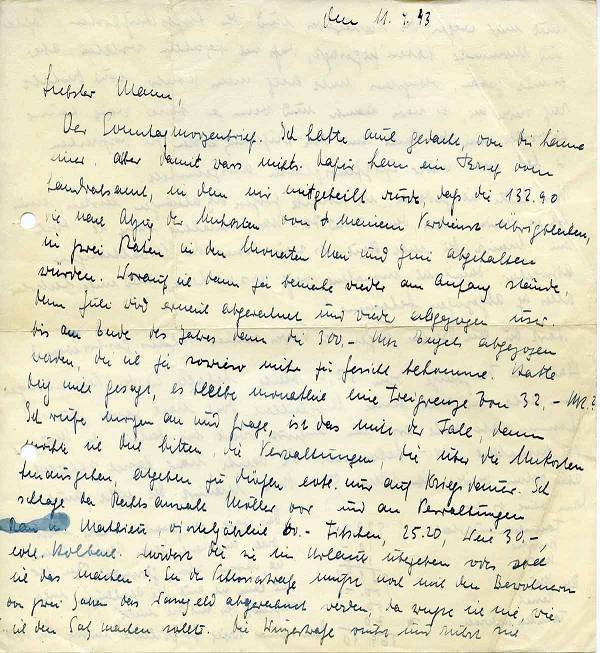 den 11. 4. 43
Liebster Mann,
Der Sonntagmorgenbrief. Ich hatte auf gedacht, von dir käme
einer. Aber damit wars nichts. Dafür kam ein Brief vom
Landratsamt, in dem mir mitgeteilt würde, dass die 132.90
die nach Abzug der Unkosten von meinem Verdienst übrigbleiben,
in zwei Raten in den Monaten Mai und Juni abgehalten
würden. Worauf ich dann bei beinahe wieder am Anfang stände,
denn Juli wird erneut abgerechnet und wieder abgezogen
bis am Ende des Jahres dann die 300.- Mk abgezogen
werden, die ich sowieso nicht zu bekomme. Hatte
gesagt, es bleibe monatlich eine Freigrenze von 32.- Mk.?
Ich rufe morgen an und frage, ist das nicht der Fall, dann
möchte ich dich bitten, die Verwaltungen, die über die Unkosten
hinausgehen, abgeben zu dürfen evtl. nur auf Kriegsdauer. Ich
schlage da Rechtsanwalt Möller vor und an Verwaltungen
Mathieu, vierteljährlich 60.- Fitschen, 25.20, Weil 30.-,
evtl. Kolbach. Würdest du sie im Urlaub übergeben oder soll
ich das machen? In der Schlossstrasse muss noch mit den Bewohnern
von zwei Jahren das abgerechnet werden, da wusste ich nie, wie
ich den machen sollte. Die und